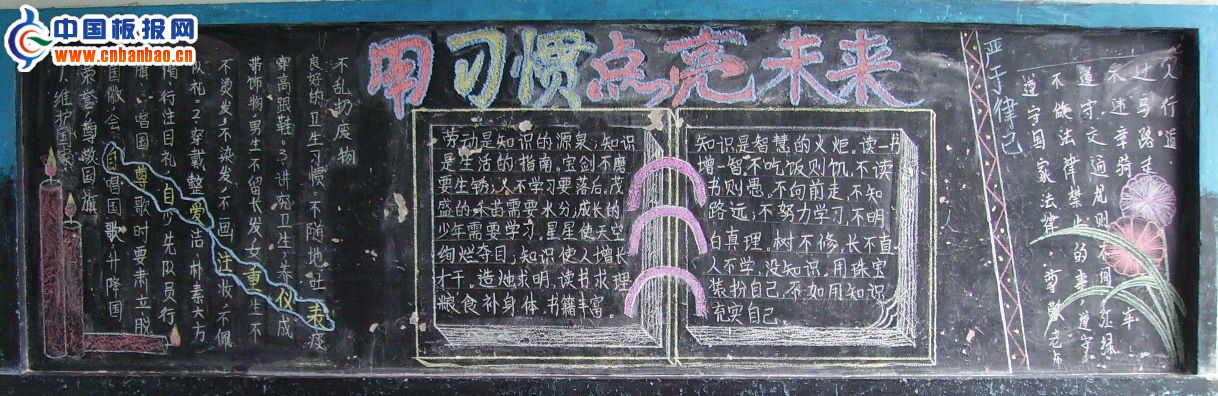 用习惯点亮未来
1、维护国家
荣誉,尊敬国旗
国徽,会唱国歌,升降国
旗、唱国歌时要肃立、脱
帽、行注目礼,少先队员行
队礼。2穿戴整洁,朴素大方
不烫发,不染发,不画妆,不佩
带饰物,男生不留长发,女生不
穿高跟鞋。3、讲究卫生,养成
良好的卫生习惯,不随地吐痰
不乱扔废物
自尊自爱 注重仪表
劳动是知识的源泉;知识
是生活的指南。宝剑不磨
要生锈;人不学习要落后。茂
盛的禾苗需要水分,成长的
少年需要学习。星星使天空
绚烂夺目;知识使人增长
才干。造烛求明,读书求理,
粮食补身体,书籍丰富。
知识是智慧的火炬。读一书
增一智。不吃饭则饥,不读
书则愚。不向前走,不知
路远;不努力学习,不明
白真理。树不修,长不直,
人不学,没知识。用珠宝
装扮自己,不如用知识
充实自己。
严于律己
遵守国家法律,尊敬老师
不做法律禁止的事
遵守交通规则不闯红绿
不违章骑车
过马路走
人行道
中国板报网
www.cnbanbao.cn